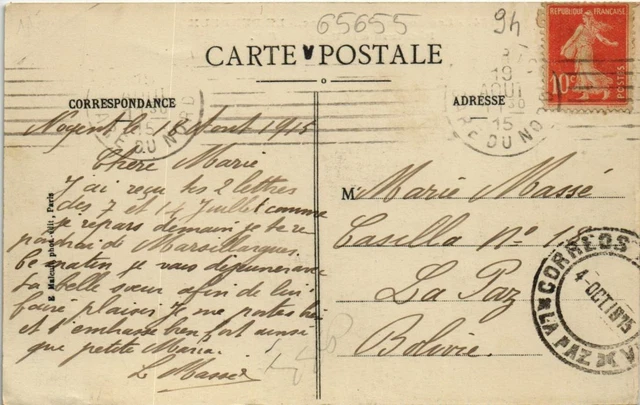 65655
94
CARTE POSTALE
CORRESPONDANCE
ADRESSE
RÉPUBLIQUE FRANÇAISE
10c
19
AOUT
15
DU NORD
DU NORD
15
Nogent le 18 Aout 1915
Chère Marie
J'ai reçu tes 2 lettres
des 7 et 14 Juillet comme
je repars demain je te re
de Marseillargues
Ce matin je vais
ta belle sœur afin de lui
faire plaisir Je me portes bien
et t'embrasse bien fort ainsi
que petite Maria
L Massé
M Marie Massé
Casilla No 18
La Paz
Bolivie
CORREOS
4-OCT 1915
LA PAZ
phot-édit, Paris